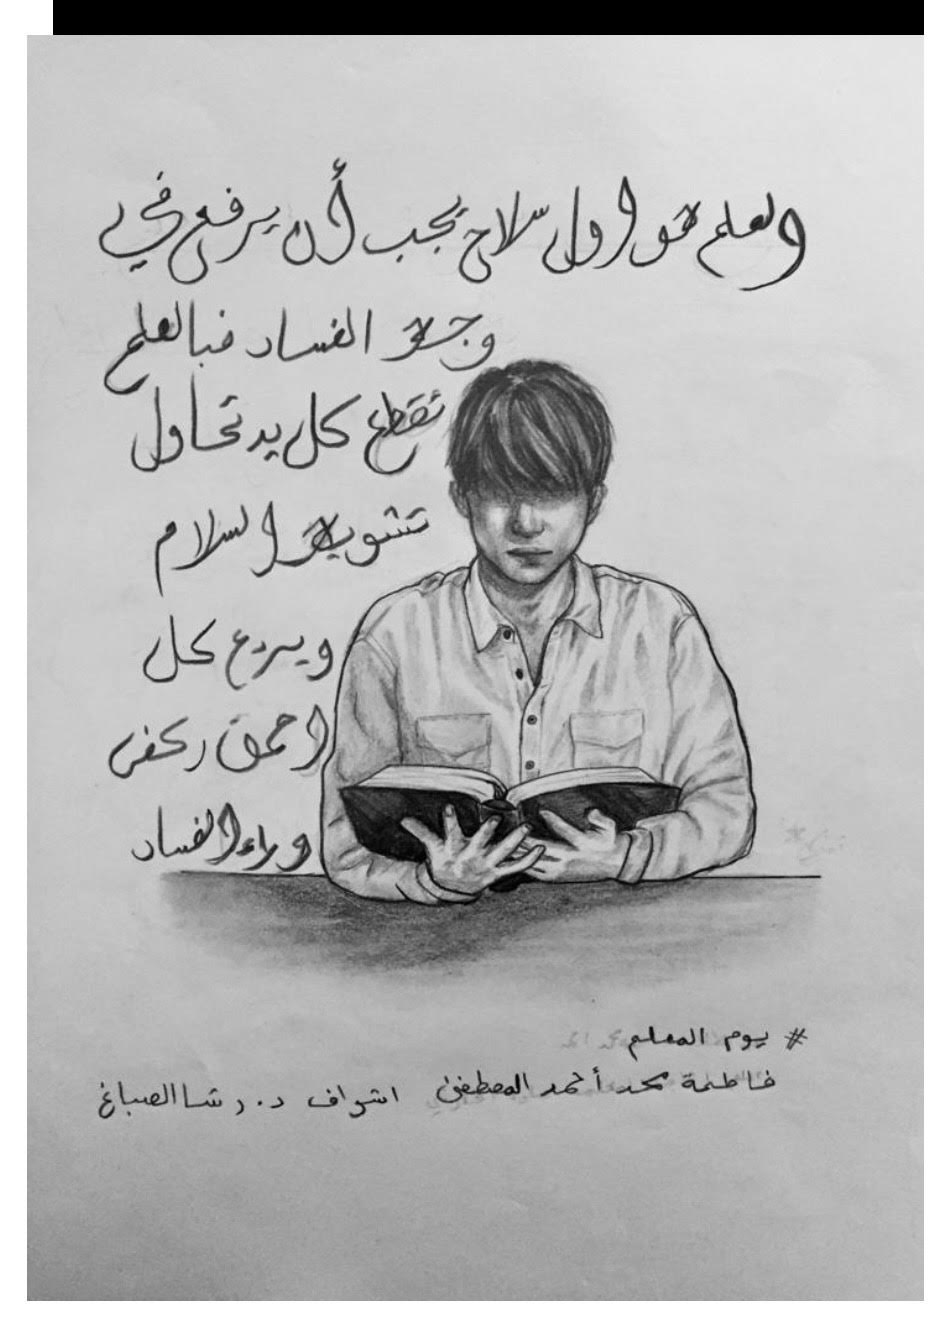 والعلم هو اول سلاح يجب أن يرفع في
وجه الفساد فبالعلم
تقطع كل يد تحاول
تشويه السلام
ويردع كل
احمق ركض
وراء الفساد
# يوم المعلم
فاطمة محمد أحمد المصطفى اشراف د. رشا الصباغ